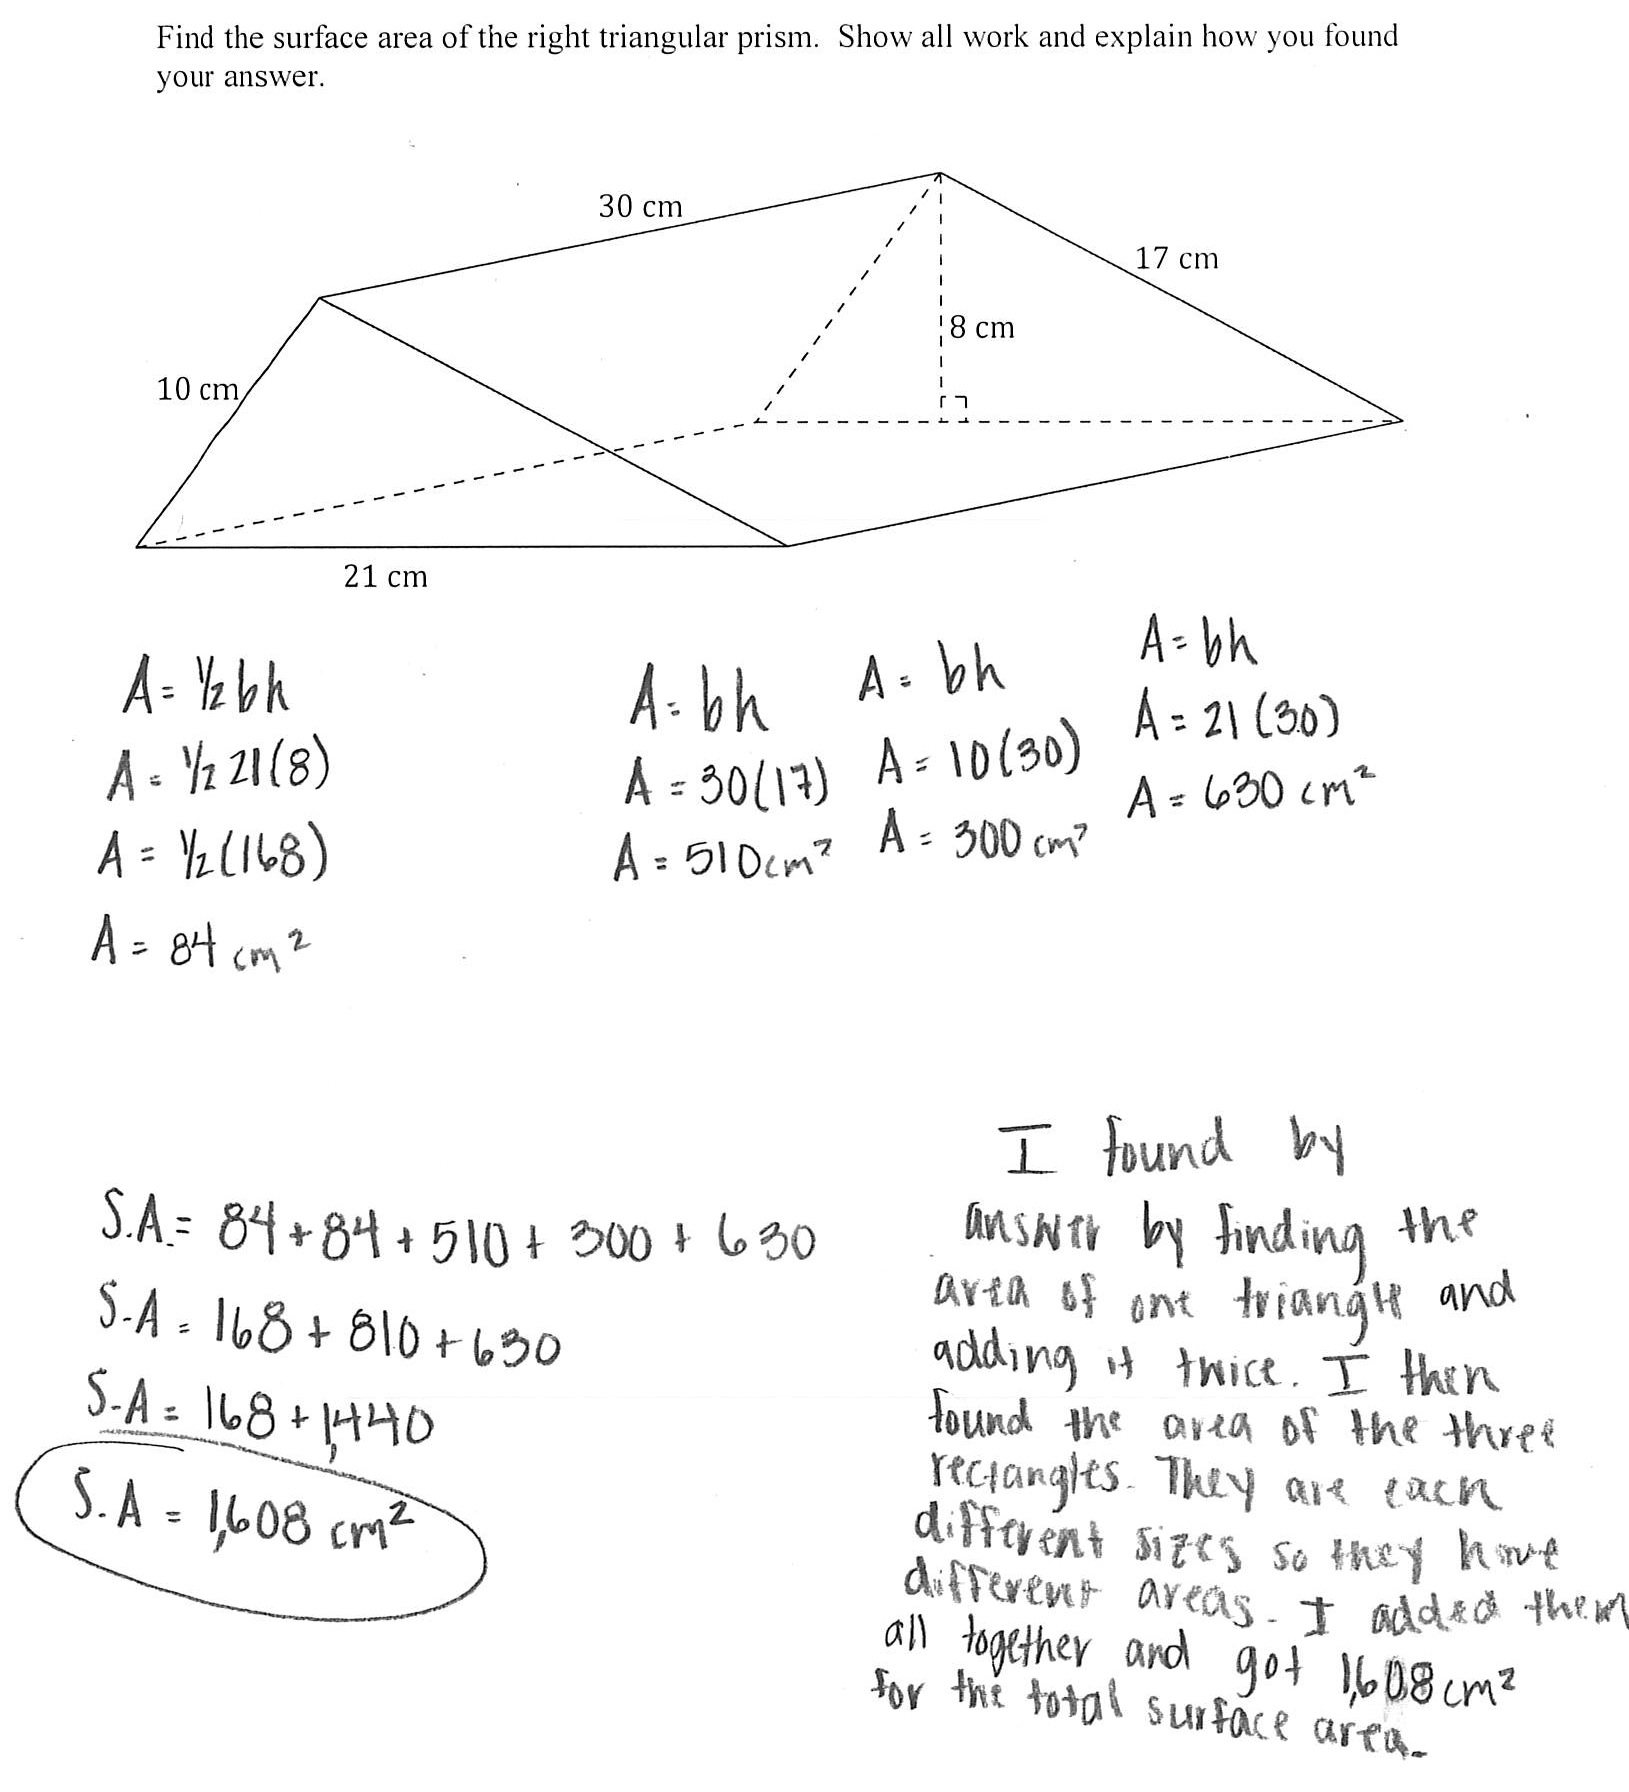 Find the surface area of the right triangular prism. Show all work and explain how you found
your answer.
30 cm
17 cm
8 cm
10 cm
21 cm
A = 1/2 bh
A = 1/2 21(8)
A = 1/2(168)
A = 84 cm²
A = bh
A = 30(17)
A = 510cm²
A = bh
A = 10(30)
A = 300 cm²
A = bh
A = 21(30)
A = 630 cm²
S.A. = 84 + 84 + 510 + 300 + 630
S.A = 168 + 810 + 630
S.A = 168 + 1,440
S.A = 1,608 cm²
I found by
answer by finding the
area of one triangle and
adding it twice. I then
found the area of the three
rectangles. They are each
different sizes so they have
different areas. I added them
all together and got 1,608 cm²
for the total surface area.